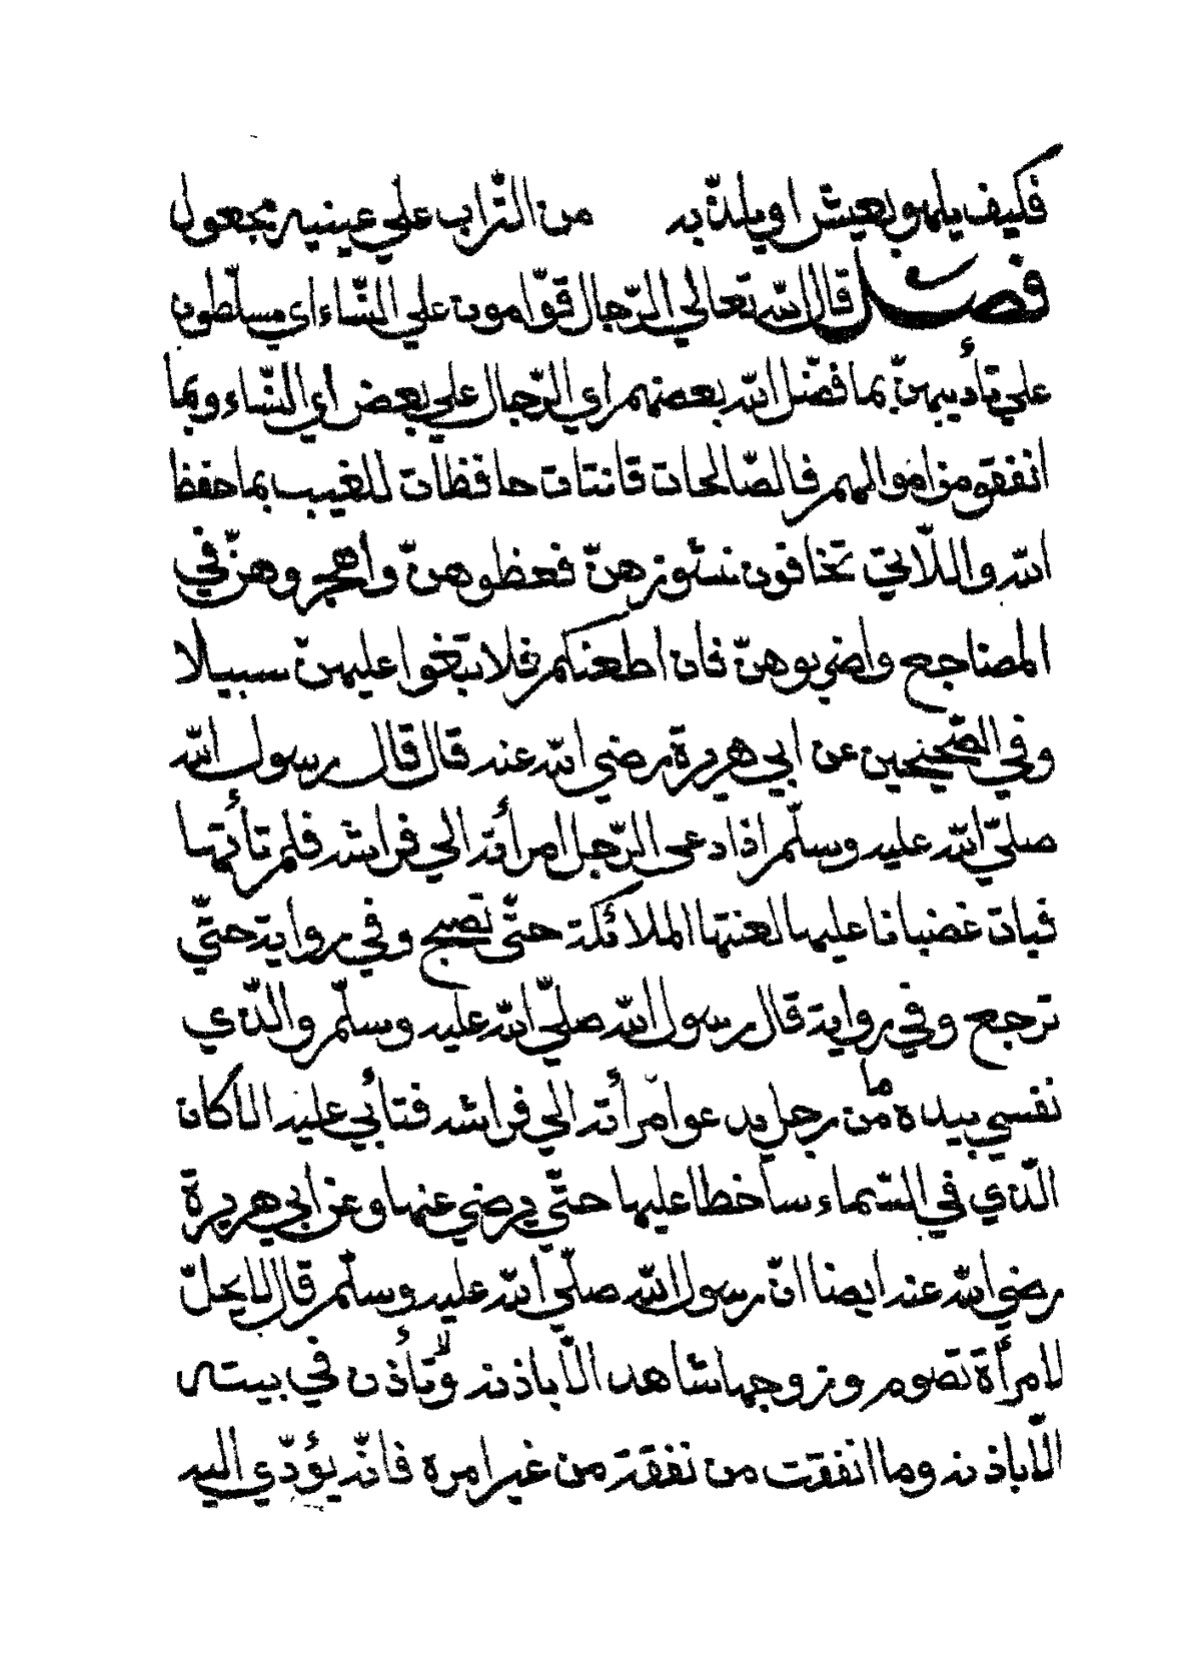 فكيف يلهو بعيش او يلذّ به من التّراب علي عينيه مجعول
فصل قال الله تعالي الرّجال قوّامون علي النّساء اي مسلّطون
علي تأديبهنّ بما فضّل الله بعضهم اي الرّجال علي بعض أي النّساء وبما
انفقو من اموالهم فالصّالحات قانتات حافظات للغيب بما حفظ
الله واللّاتي تخافون نشوزهنّ فعظوهنّ واهجروهنّ في
المضاجع واضربوهنّ فان اطعنكم فلا تبغوا عليهنّ سبيلا
وفي الصّحيحين عن ابي هريرة رضي الله عنه قال قال رسول الله
صلّي الله عليه وسلّم اذا دعى الرّجل امرأته الي فراشه فلم تأتها
فبات غضبانا عليها لعنتها الملائكة حتّى تصبح وفي رواية حتّي
ترجع وفي رواية قال رسول الله صلّي الله عليه وسلّم والّذي
نفسي بيده ما من رجل يدعو امرأته الي فراشه فتأبي عليه الا كان
الّذي في السّماء ساخطا عليها حتّي يرضي عنها وعن ابي هريرة
رضي الله عنه ايضا انّ رسول الله صلّي الله عليه وسلّم قال لا يحلّ
لامرأة تصوم وزوجها شاهد الّا باذنه ولا تأذن في بيته
الّا باذنه وما انفقت من نفقة من غير امره فانّه يؤدّي اليه